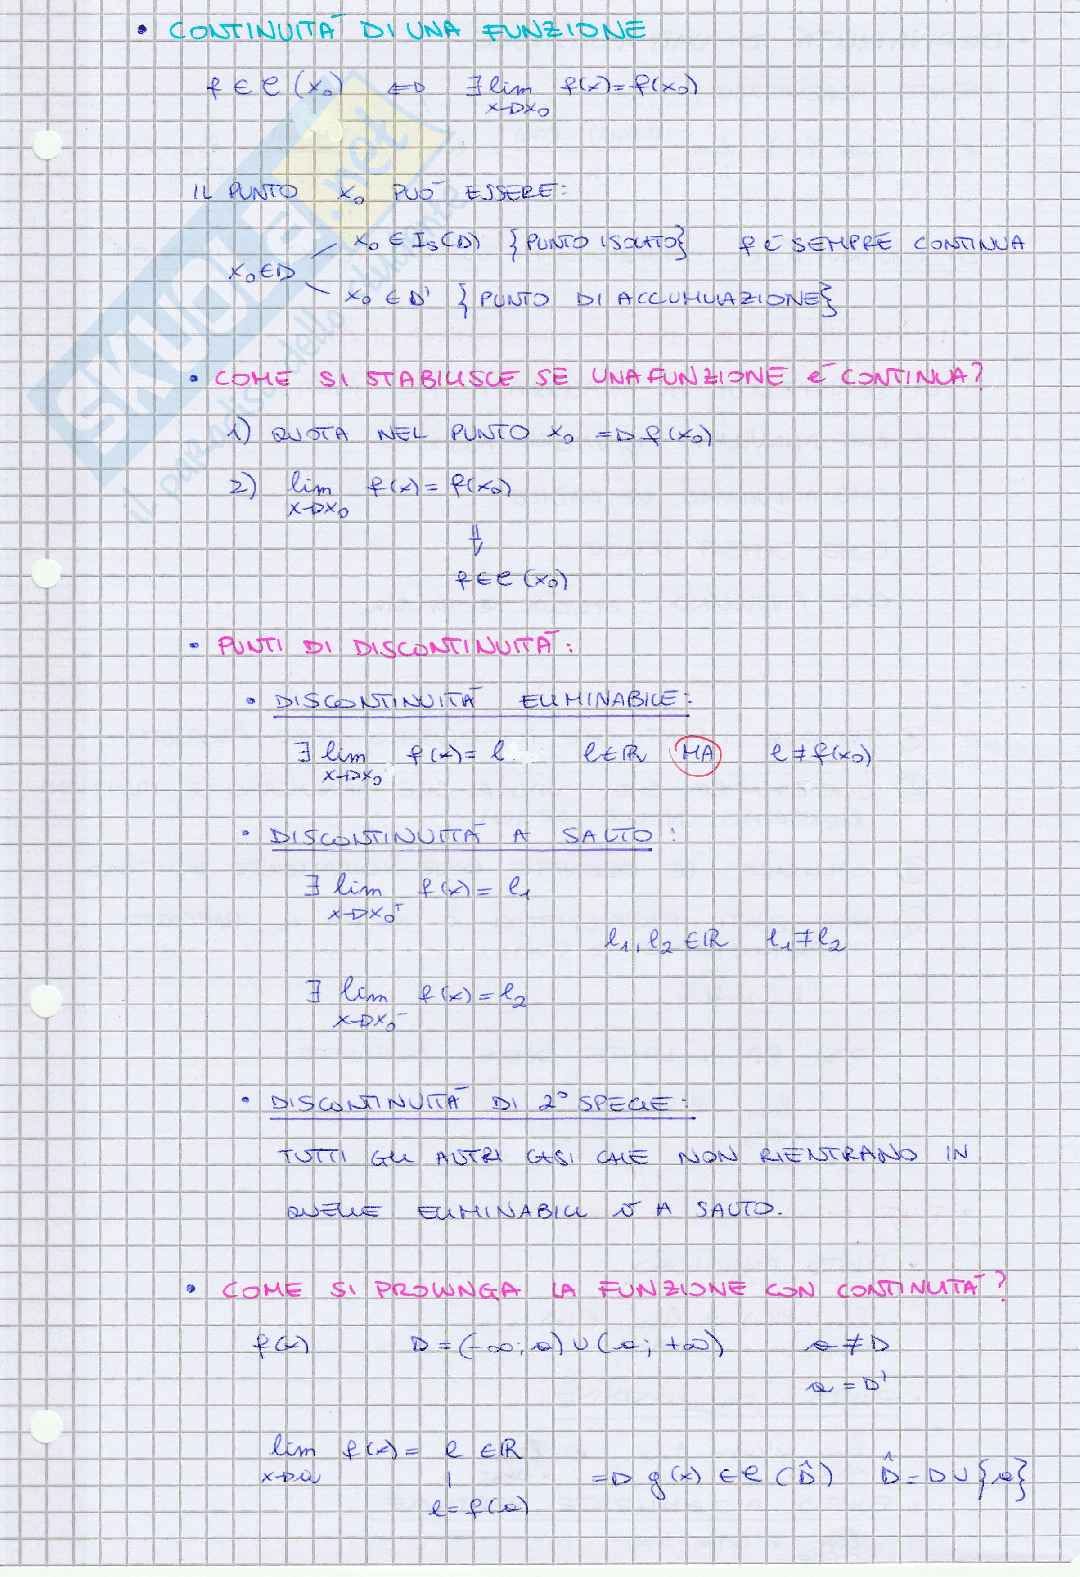 • CONTINUITÀ DI UNA FUNZIONE
f ∈ C (x₀) ⇔ ∃ lim f(x) = f(x₀)
x→x₀
IL PUNTO x₀ PUÒ ESSERE:
x₀ ∈ Is(D) {PUNTO ISOLATO} f È SEMPRE CONTINUA
x₀ ∈ D
x₀ ∈ D' {PUNTO DI ACCUMULAZIONE}
• COME SI STABILISCE SE UNA FUNZIONE È CONTINUA?
1) QUOTA NEL PUNTO x₀ ⇒ f(x₀)
2) lim f(x) = f(x₀)
x→x₀
⇓
f ∈ C (x₀)
• PUNTI DI DISCONTINUITÀ:
• DISCONTINUITÀ ELIMINABILE:
∃ lim f(x) = l l ∈ ℝ MA l ≠ f(x₀)
x→x₀
• DISCONTINUITÀ A SALTO:
∃ lim f(x) = l₁
x→x₀⁺
l₁, l₂ ∈ ℝ l₁ ≠ l₂
∃ lim f(x) = l₂
x→x₀⁻
• DISCONTINUITÀ DI 2° SPECIE:
TUTTI GLI ALTRI CASI CHE NON RIENTRANO IN
QUELLE ELIMINABILI O A SALTO.
• COME SI PROLUNGA LA FUNZIONE CON CONTINUITÀ?
f(x) D = (-∞; a) ∪ (a; +∞) a ≠ D
a = D'
lim f(x) = l ∈ ℝ ⇒ g(x) ∈ C (D̂) D̂ = D ∪ {a}
x→a
l = f(a)
SKUOLA.net
il paradiso dello studente